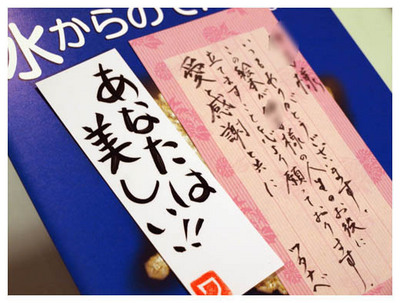 水からの
様
いつもありがとうございます。
この絵本が 様の人生のお役に
立てますことを心より願っております。
愛と感謝と共に
ワタナベ
あなたは
美しい!!